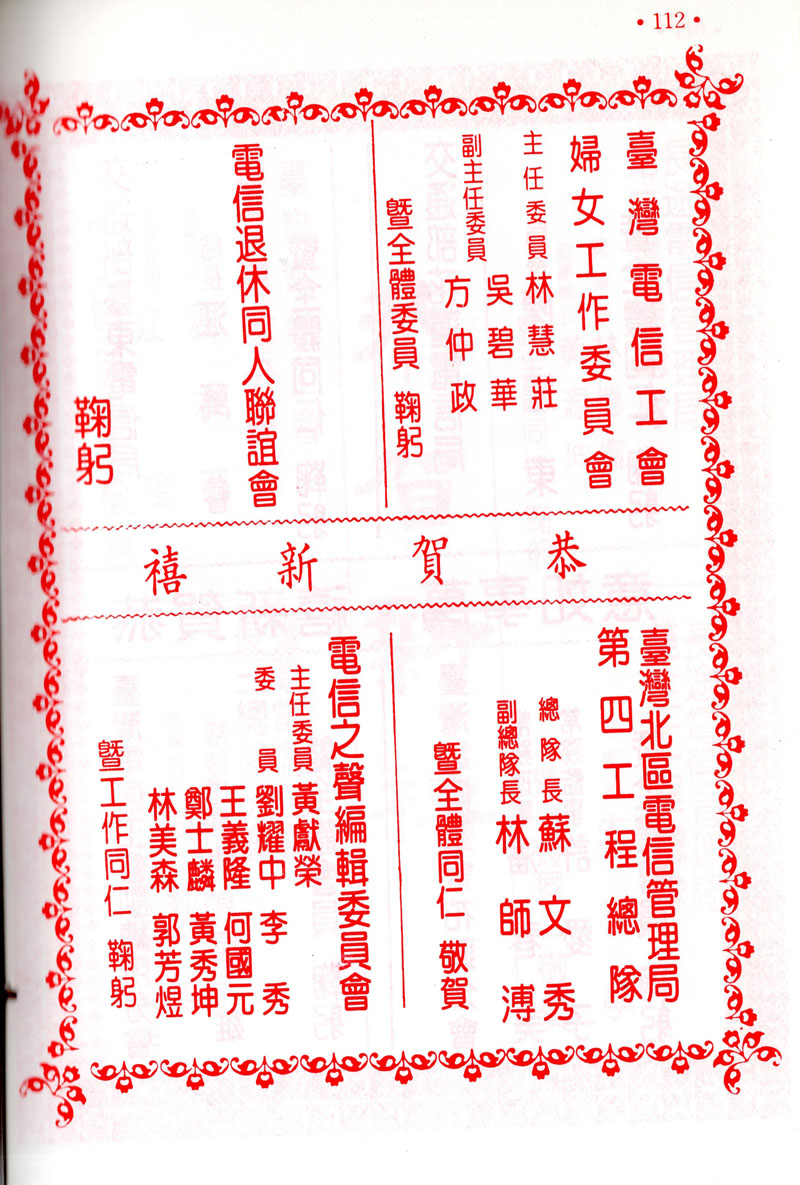 •112•
臺灣電信工會
婦女工作委員會
主任委員 林慧莊
吳碧華
副主任委員 方仲政
暨全體委員 鞠躬
電信退休同人聯誼會
鞠躬
恭賀新禧
臺灣北區電信管理局
第四工程總隊
總隊長 蘇文秀
副總隊長 林師溥
暨全體同仁 敬賀
電信之聲編輯委員會
主任委員 黃獻榮
委員 劉耀中 李秀
王義隆 何國元
鄭士麟 黃秀坤
林美森 郭芳煜
暨工作同仁 鞠躬